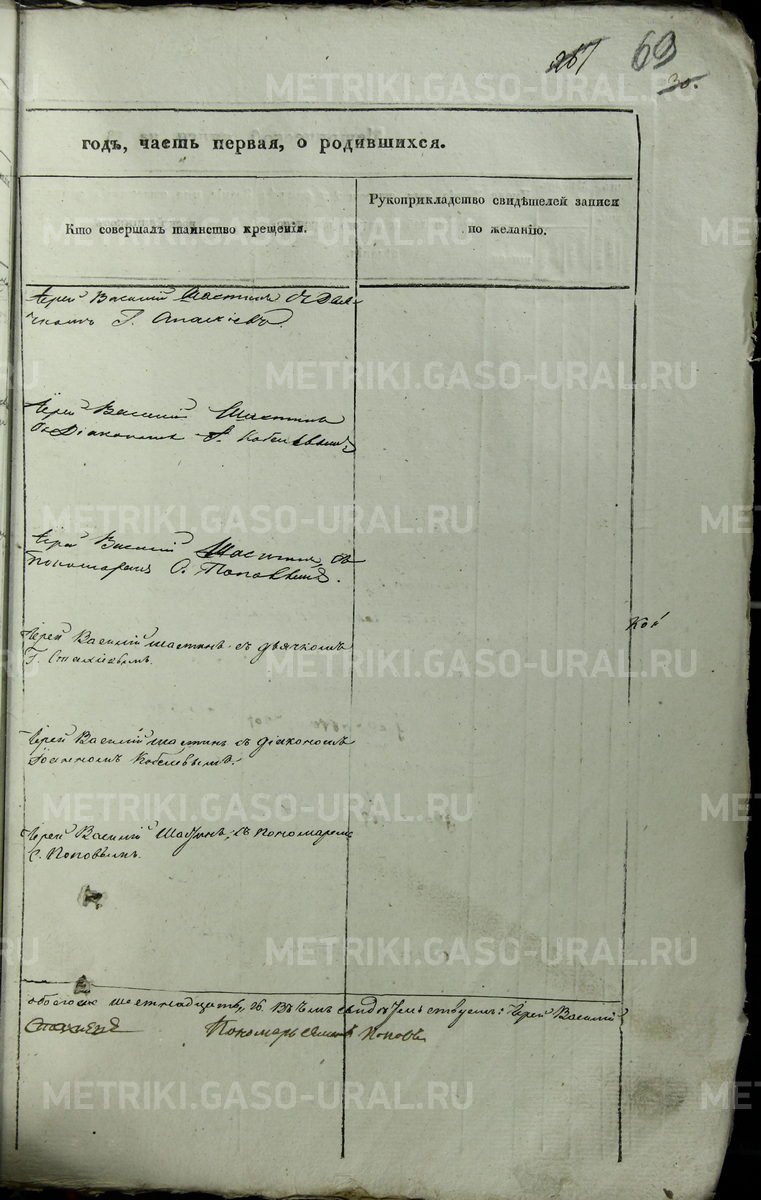 267 69
30.
METRIKI.GASO-URAL.RU
годъ, часть первая, о родившихся.
Кто совершалъ таинство крещенія.
Рукоприкладство свидѣтелей записи
по желанію.
Іерей Василій Шастинъ съ Дья-
чкомъ Г. Стахіевъ.
Іерей Василій Шастинъ
съ Діакономъ І. Кобелевымъ
Іерей Василій Шастинъ, съ
пономаремъ С. Поповымъ.
Іерей Василій Шастинъ съ дьячкомъ
Г. Стахіевымъ.
Іерей Василій Шастинъ съ діакономъ
Іоанномъ Кобелевымъ.
Іерей Василій Шастинъ, съ пономаремъ
С. Поповымъ.
обоего шестнадцать, 16. Въ чемъ свидѣтельствуемъ: Іерей Василій
Пономарь Поповъ